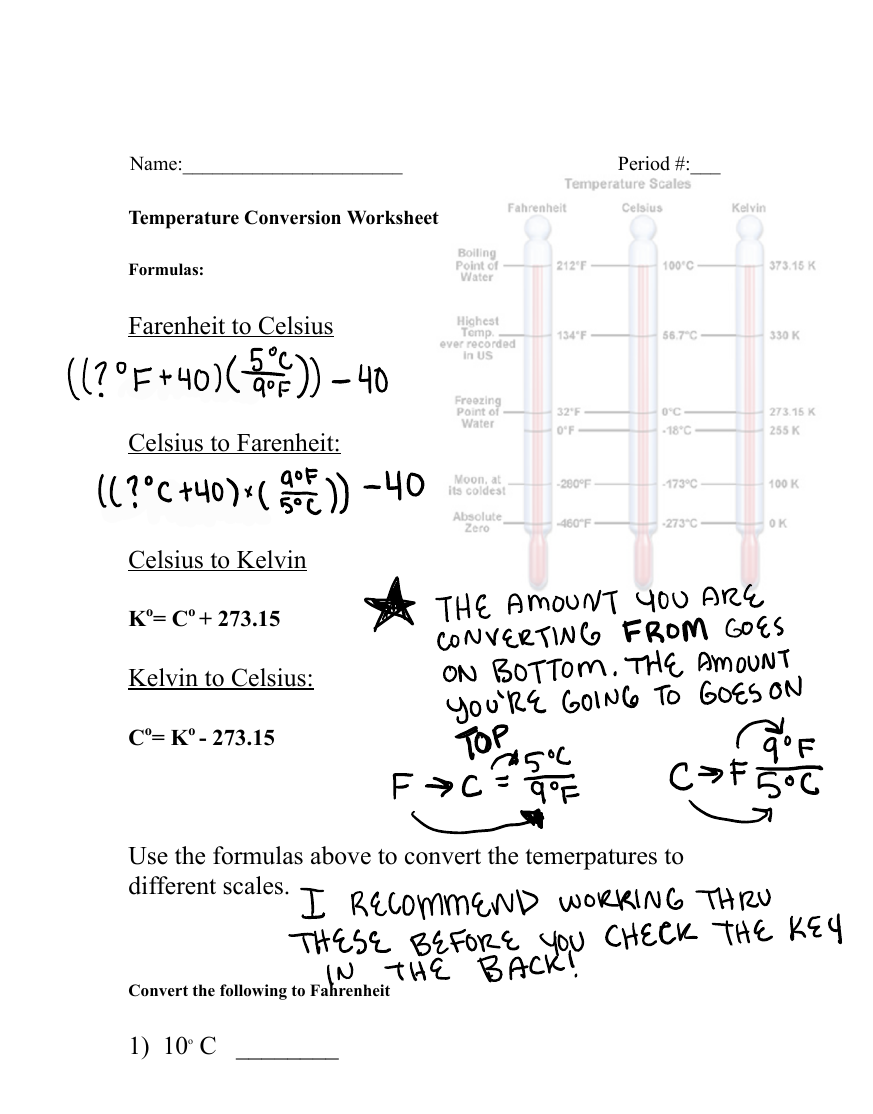 Name:______________________ Period #:___
Temperature Scales
Temperature Conversion Worksheet
Fahrenheit Celsius Kelvin
Boiling
Point of
Water
212°F 100°C 373.15 K
Highest
Temp.
ever recorded
in US
134°F 56.7°C 330 K
Freezing
Point of
Water
32°F 0°C 273.15 K
0°F -18°C 255 K
Moon, at
its coldest
-280°F -173°C 100 K
Absolute
Zero
-460°F -273°C 0 K
Formulas:
Farenheit to Celsius
((?°F+40)(5°C/9°F)) – 40
Celsius to Farenheit:
((?°C+40)×(9°F/5°C)) – 40
Celsius to Kelvin
K°= C° + 273.15
Kelvin to Celsius:
C°= K° - 273.15
★ THE AMOUNT YOU ARE
CONVERTING FROM GOES
ON BOTTOM. THE AMOUNT
YOU'RE GOING TO GOES ON
TOP
F → C = 5°C/9°F
C → F 9°F/5°C
Use the formulas above to convert the temerpatures to
different scales.
I RECOMMEND WORKING THRU
THESE BEFORE YOU CHECK THE KEY
IN THE BACK!
Convert the following to Fahrenheit
1) 10° C ________